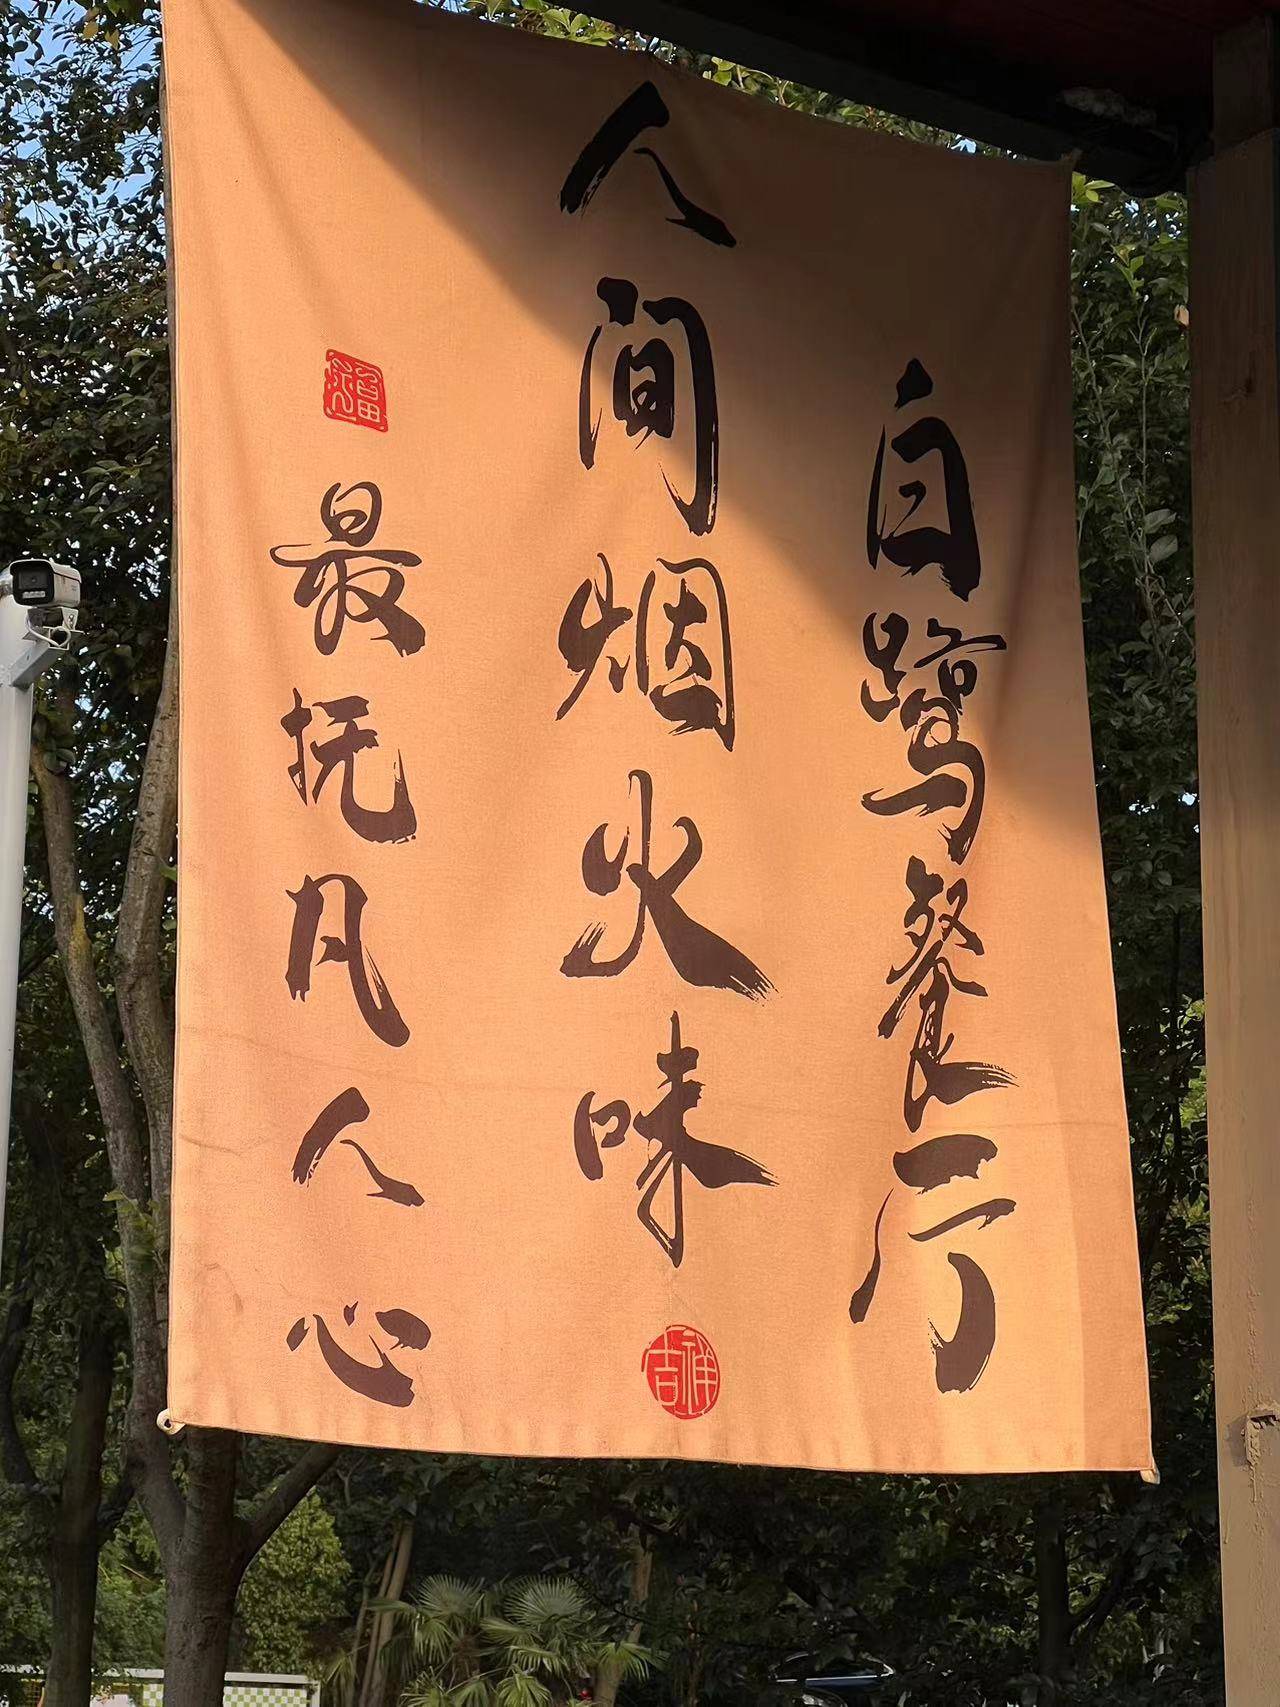 白鹭餐厅
人间烟火味
吉祥
福
最抚凡人心